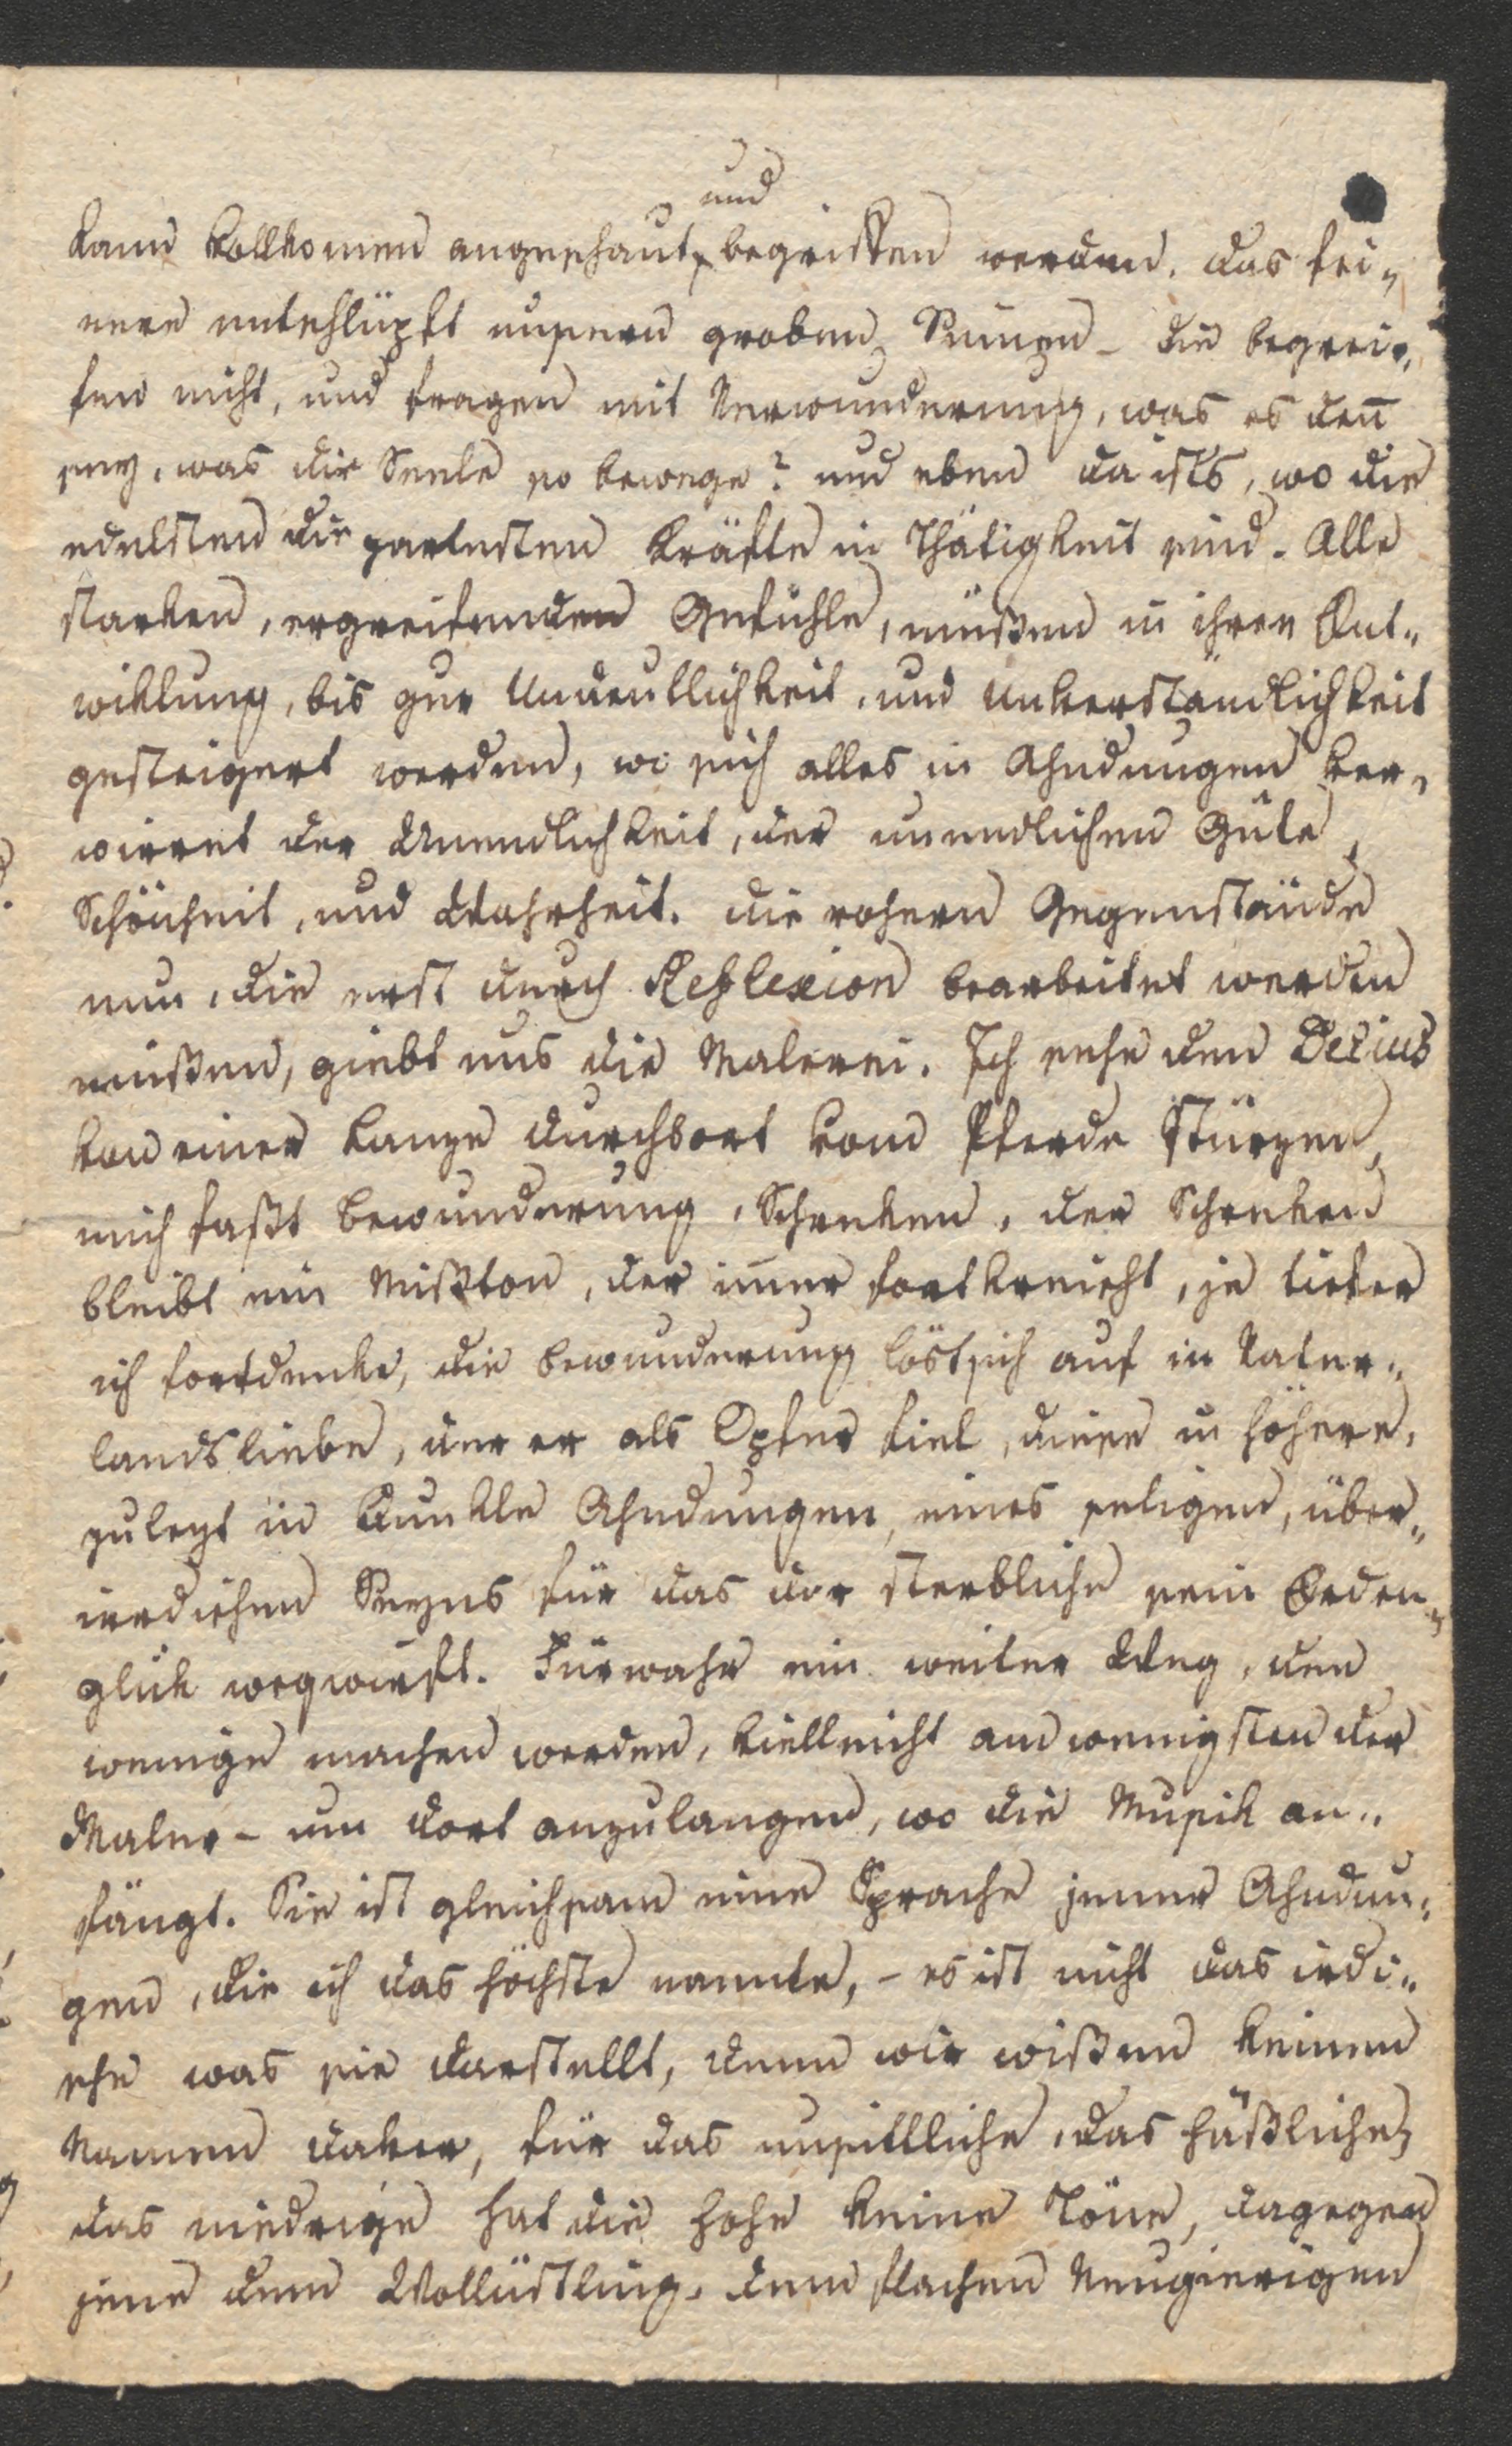 und
kann vollkomen angeschaut begriffen werden. das fei„
nere entschlüpft unsern groben Sinnen – die begrei„
fen nicht, und fragen mit Verwunderung, was es den̄
sey, was die Seele so bewege? und eben da ists, wo die
edelsten die zartesten Kräfte in Thätigkeit sind. Alle
starken, ergreifenden Gefühle, müßen in ihrer Ent„
wiklung, bis zur Undeutlichkeit, und Unverständlichkeit
gesteigert werden, wo sich alles in Ahndungen ver„
wirret der Unendlichkeit, der unendlichen Güte,
Schönheit, und Wahrheit. die rohern Gegenstände
nun, die erst durch Reflexion bearbeitet werden
müßen, giebt uns die Malerei. Ich sehe den Decius
von einer Lanze durchbort vom Pferde stürzen,
mich faßt Bewunderung, Schreken, der Schreken
bleibt ein Mißton, der im̄er fortkreischt, je tiefer
ich fortdenke, die Bewunderung löst sich auf in Vater„
landsliebe, der er als Opfer fiel, diese in höhere,
zulezt in dunkle Ahndungen, eines seligen, über„
irrdischen Seyns für das der sterbliche sein Erden„
glük wegwirft. Fürwahr ein weiter Weg, den
wenige machen werden, vielleicht am wenigsten der
Maler – um dort anzulangen, wo die Musik an„
fängt. Sie ist gleichsam eine Sprache jener Ahndun„
gen, die ich das höchste nannte, – es ist nicht das irdi„
sche was sie darstellt, denn wir wißen keinen
Namen dafür, für das unsittliche, das häßliche,
das niedrige hat die hohe keine Töne, dagegen
jene dem Wollüstling, dem flachen Neugierigen